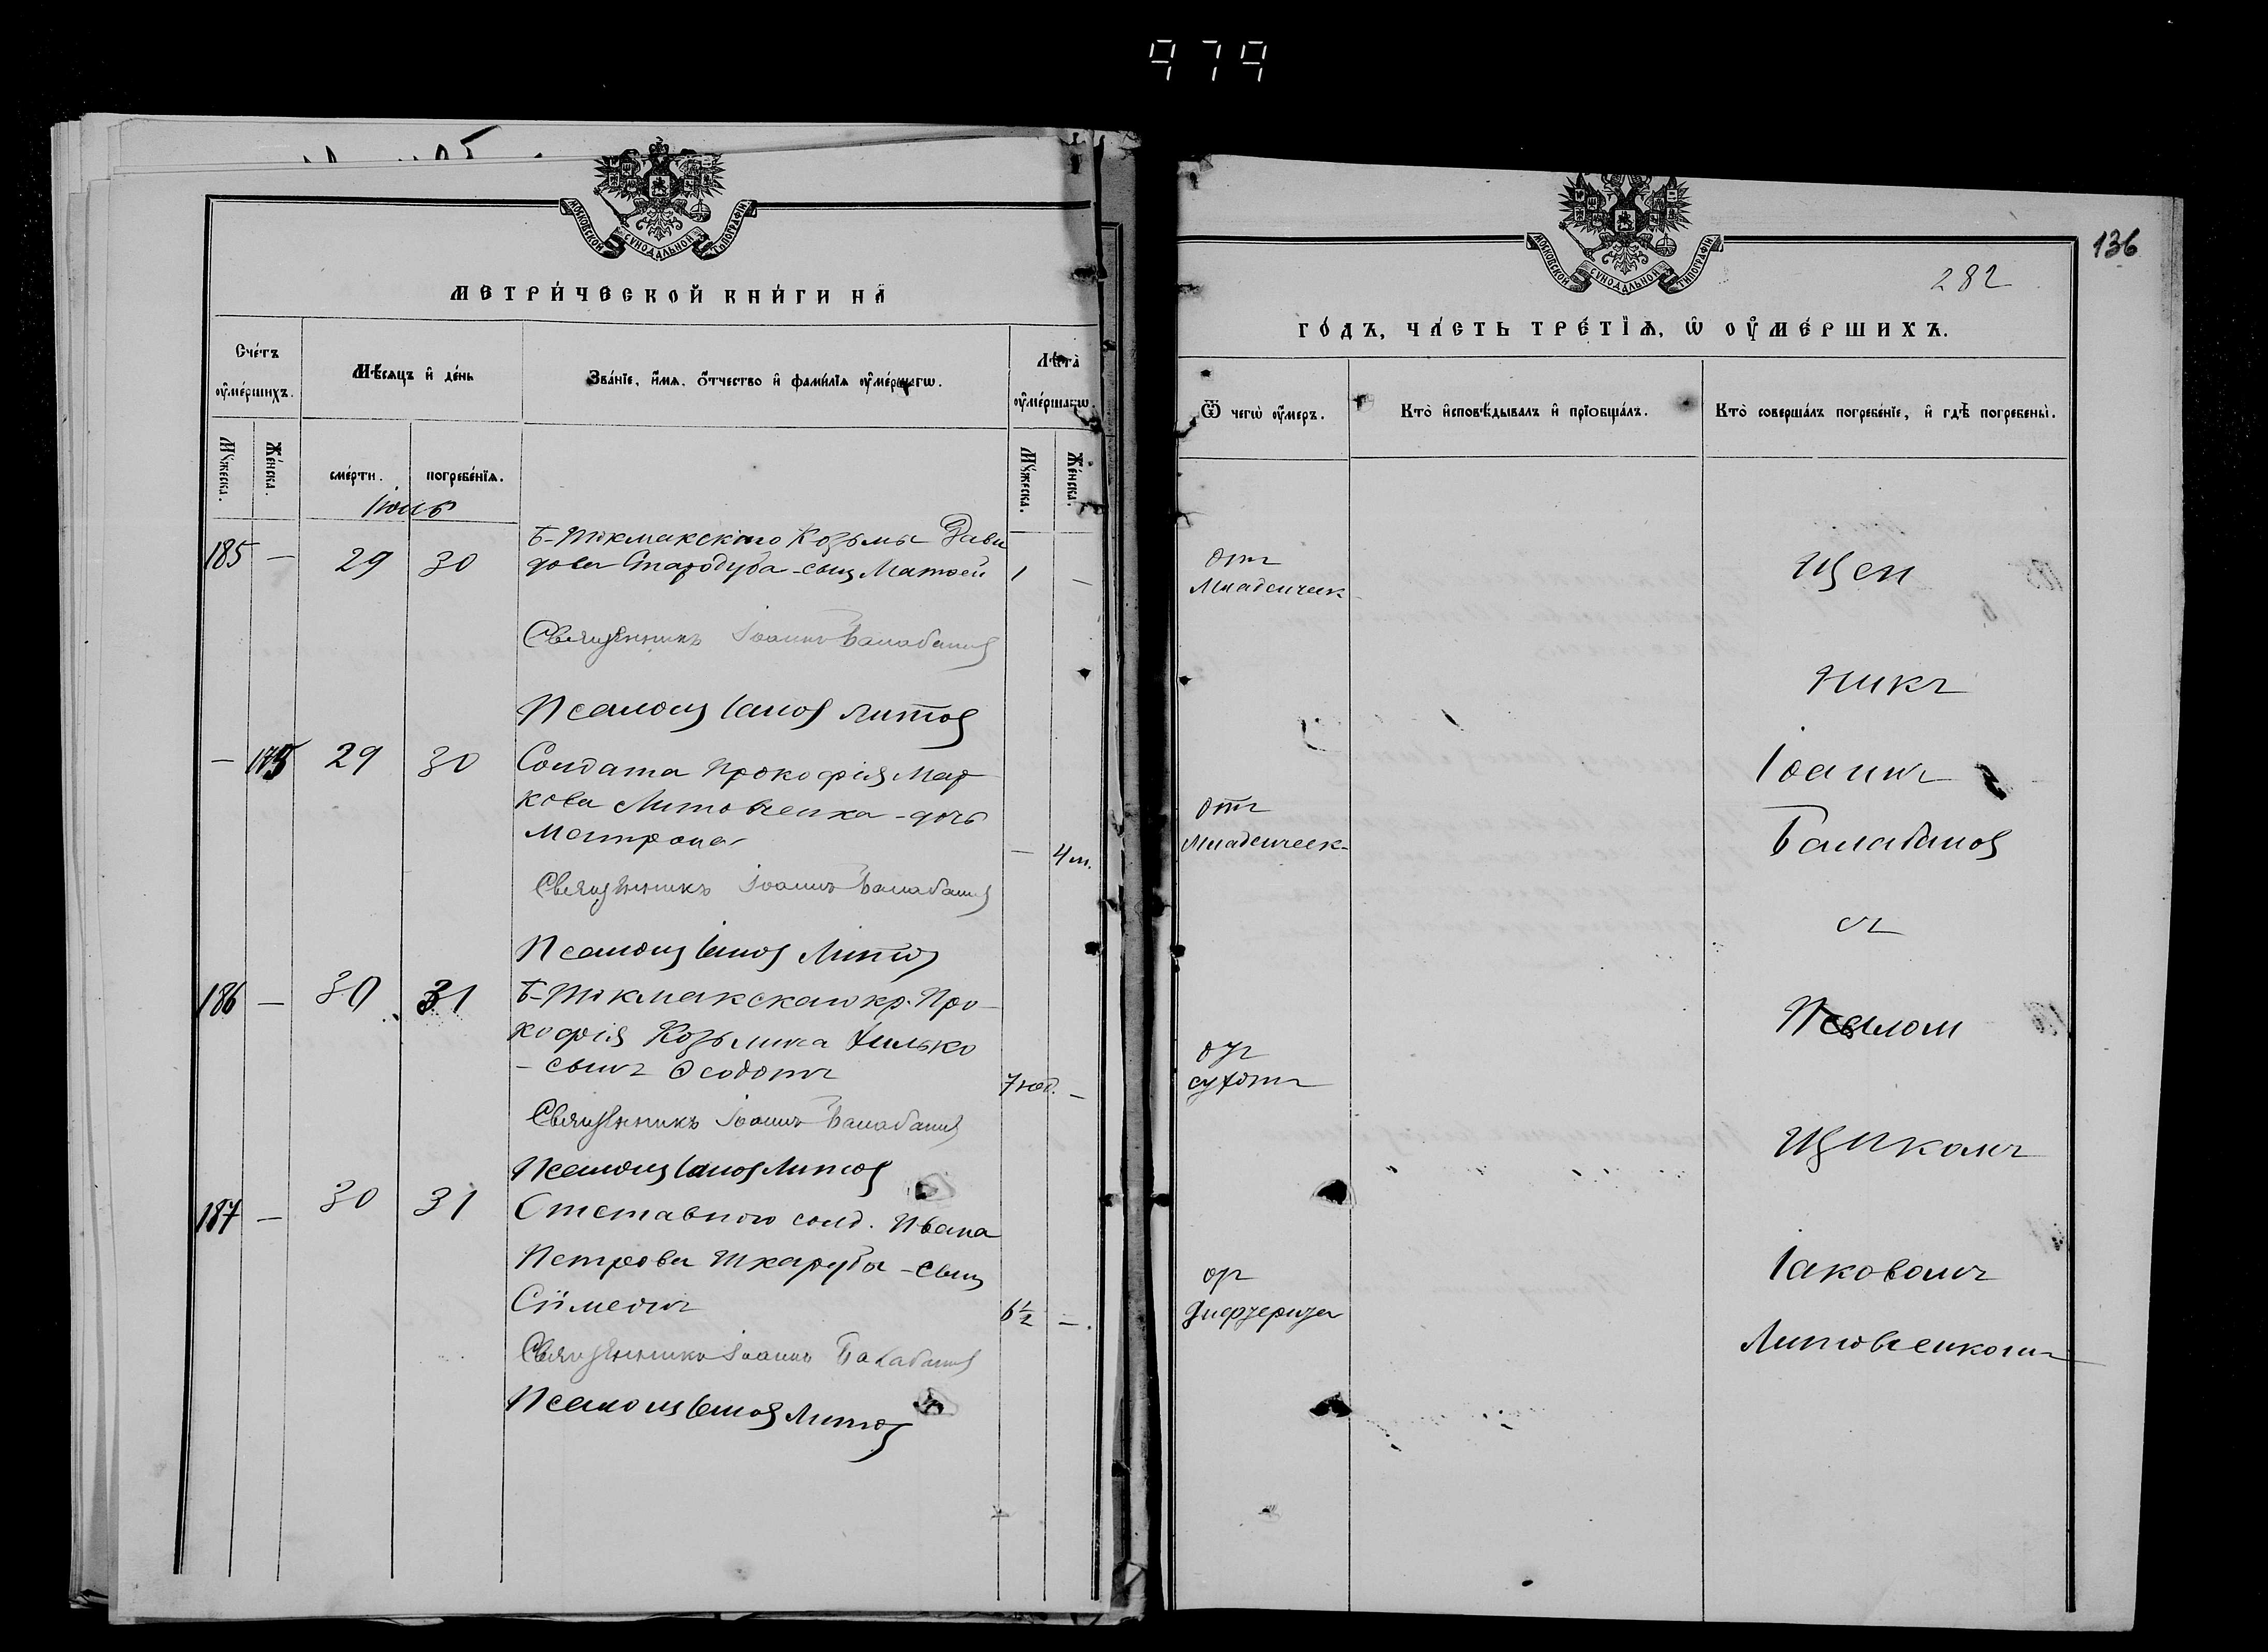 979
МОСКОВСКОЙ СУНОДАЛЬНОЙ ТИПОГРАФІИ
МЕТРИ́ЧЕСКОЙ КНИ́ГИ НА
Сче́тъ ᲂу҆ме́ршихъ.
Мѣ́сяцъ и҆ де́нь
Зва́нїе, и҆́мѧ, ѻ҆́тчество и҆ фами́лїѧ ᲂу҆ме́ршагѡ.
Лѣ́та ᲂу҆ме́ршагѡ.
Му́жеска.
Же́нска.
сме́рти.
погребе́нїѧ.
Му́жеска.
Же́нска.
Іюль
185 — 29 30
Б-Токмакскаго Козьмы Дави
дова Стародуба - сынъ Матѳей 1 —
Священникъ Іоаннъ Балабановъ
Псаломщ Іаков Литов
— 175 29 30
Солдата Прокофія Мар
кова Литовченка - дочь
Матрона — 4 м.
Священникъ Іоаннъ Балабановъ
Псаломщ Іаков Литов
186 — 30 31
Б-Токмакскаго кр. Про-
кофія Козьмина
- сынъ Ѳеодотъ 7 —
Священникъ Іоаннъ Балабановъ
Псаломщ Іаков Литов
187 — 30 31
Отставного солд. Ивана
Петрова Шкаруба - сынъ
Сѵмеонъ 6½ —
Священникъ Іоаннъ Балабановъ
Псаломщ Іаков Литов
МОСКОВСКОЙ СУНОДАЛЬНОЙ ТИПОГРАФІИ
136
282
ГО́ДЪ, ЧА́СТЬ ТРЕ́ТЇѦ, Ѡ҆ ОУ҆МЕ́РШИХЪ.
Ѿ чегѡ̀ ᲂу҆́меръ.
Кто̀ и҆сповѣ́дывалъ и҆ прїѻбща́лъ.
Кто̀ соверша́лъ погребе́нїе, и҆ гдѣ̀ погребены̀.
отъ
Младенческ-
отъ
Младенческ-
отъ
сухотъ
отъ
дифтерита
Священ
никъ
Іоаннъ
Балабановъ
съ
Псалом
щикомъ
Іаковомъ
Литовченкомъ